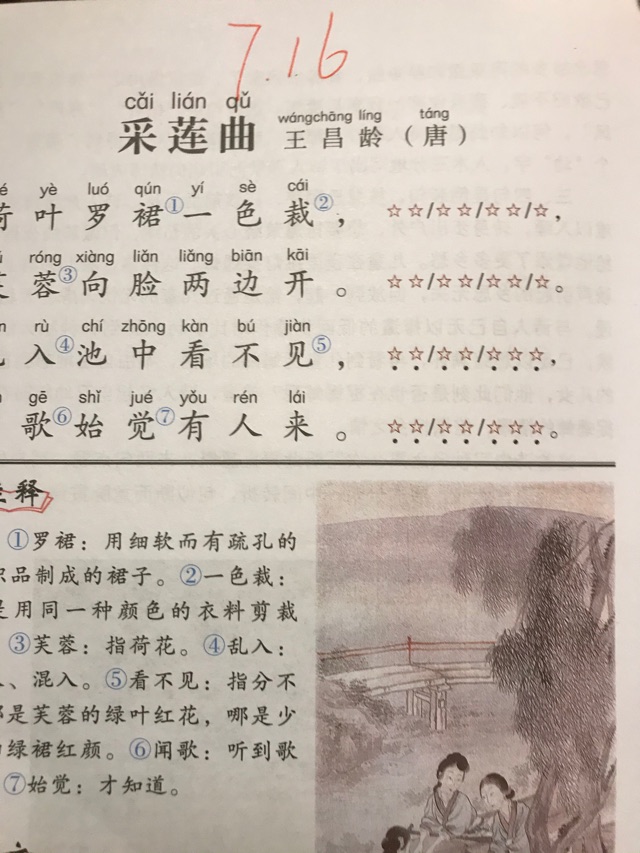 7.16
cǎi lián qǔ
采莲曲
wángchāng líng táng
王昌龄（唐）
yè luó qún yí sè cái
荷叶罗裙①一色裁②，☆☆/☆☆/☆☆/☆，
róng xiàng liǎn liǎng biān kāi
蓉③向脸两边开。☆☆/☆☆/☆☆/☆。
rù chí zhōng kàn bú jiàn
入④池中看不见⑤，☆☆/☆☆/☆☆☆，
gē shǐ jué yǒu rén lái
歌⑥始觉⑦有人来。☆☆/☆☆/☆☆☆。
注释
①罗裙：用细软而有疏孔的
织品制成的裙子。②一色裁：
是用同一种颜色的衣料剪裁
③芙蓉：指荷花。④乱入：
、混入。⑤看不见：指分不
那是芙蓉的绿叶红花，哪是少
的绿裙红颜。⑥闻歌：听到歌
⑦始觉：才知道。